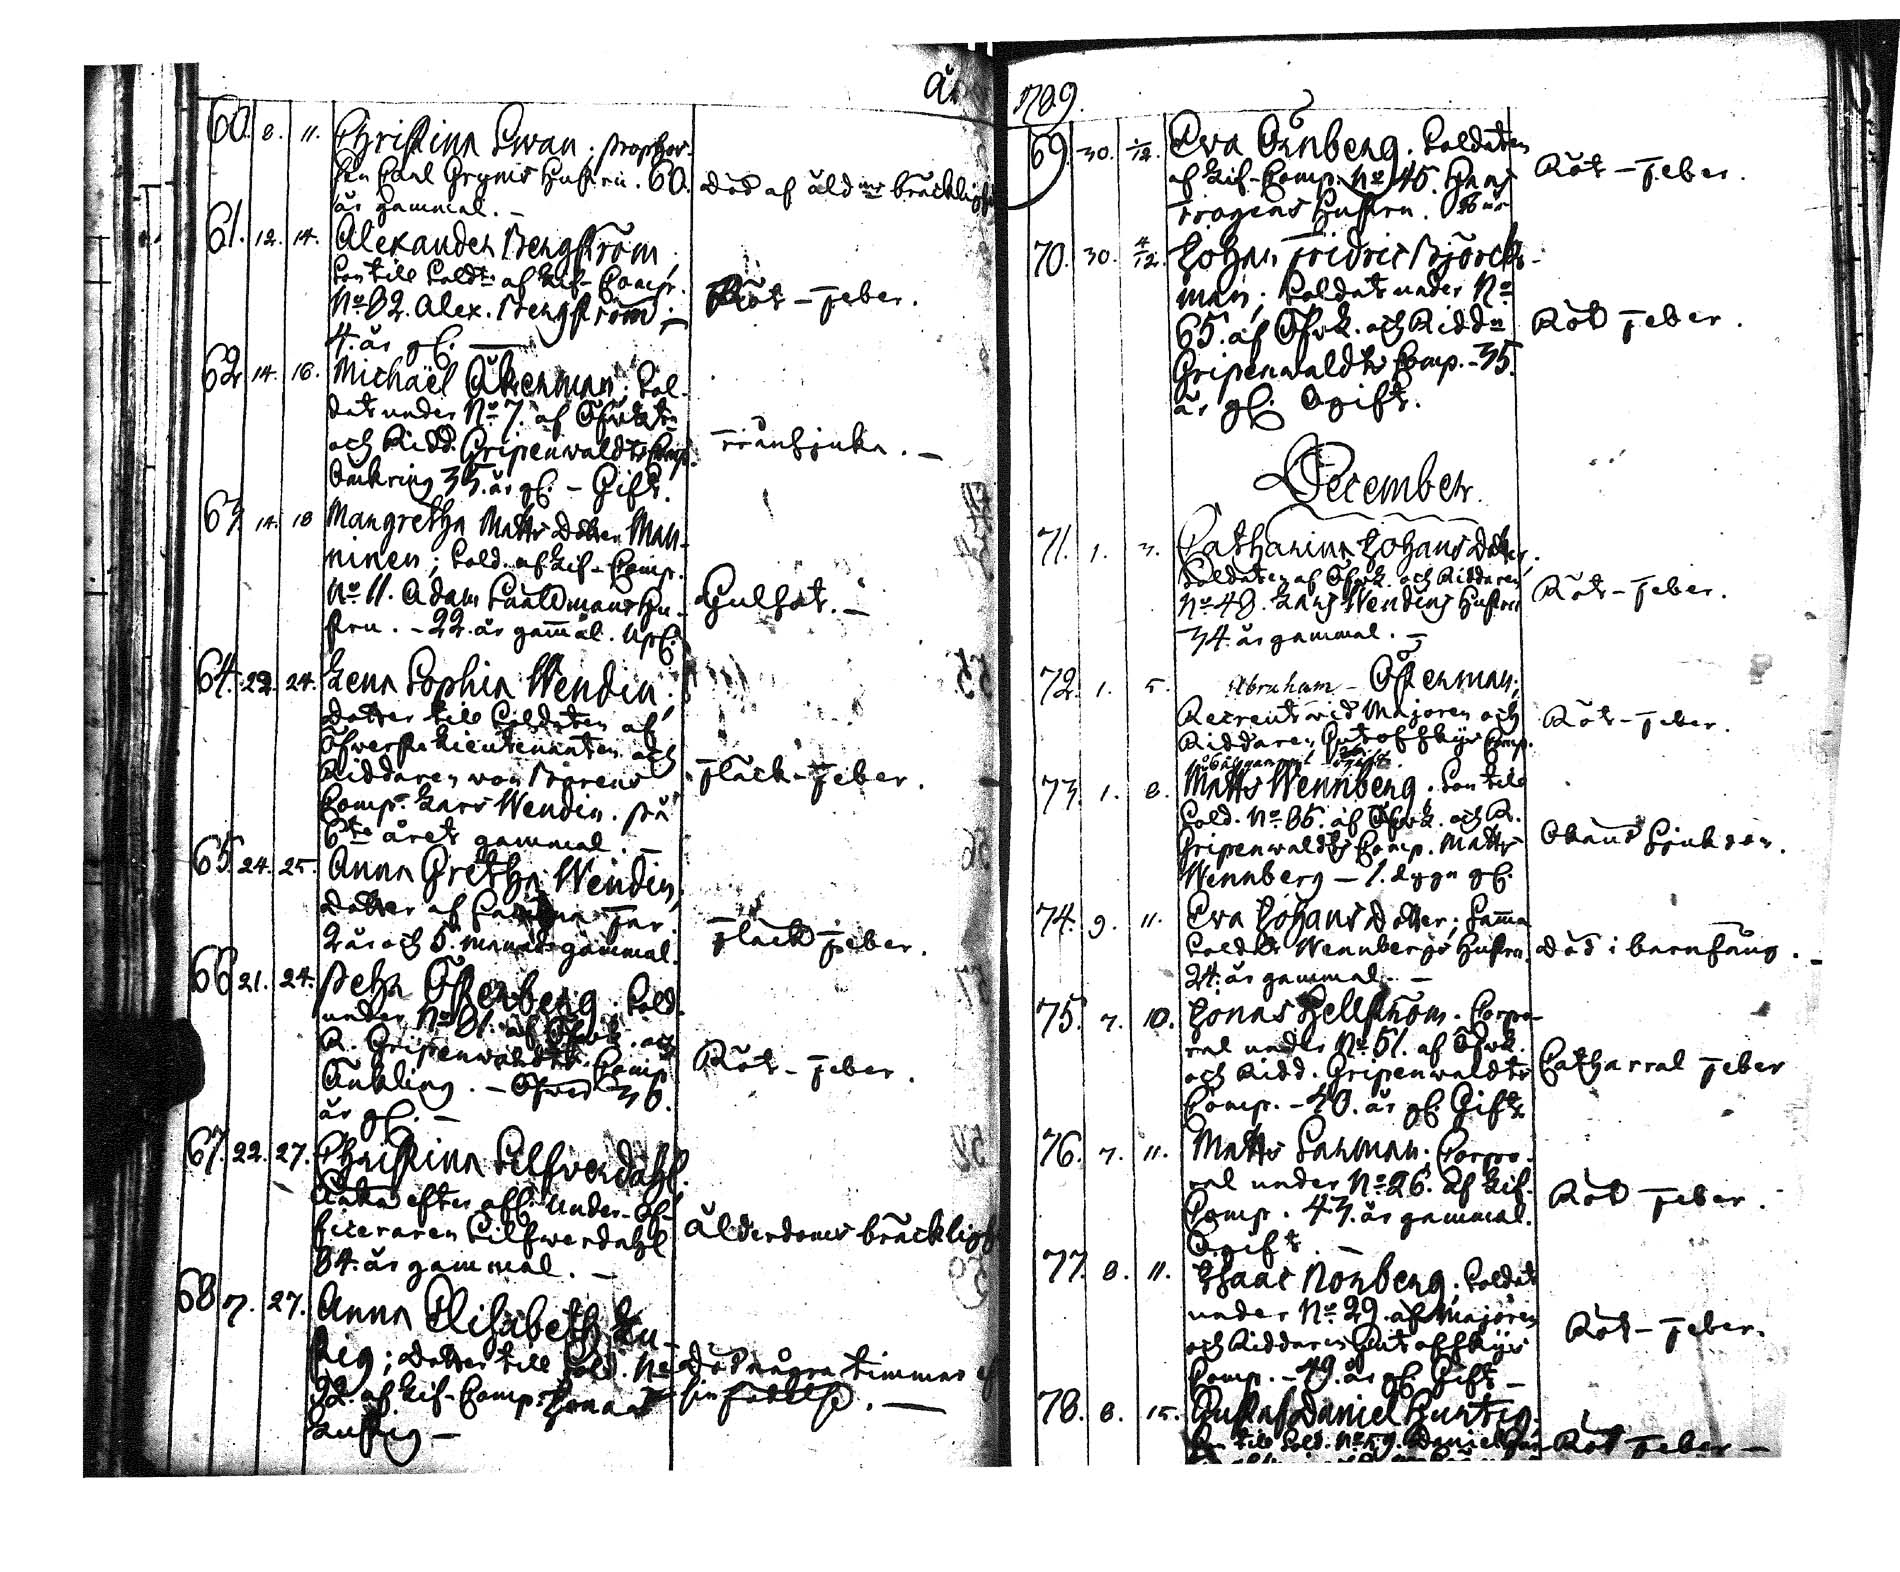 År
60. 8. 11. Christina Swan; Prophos-
sen Carl Gryms Hustru. 60. Död af ålders bräcklighet
år gammal. –
61. 12. 14. Alexander Bergström;
Son till Soldn af Lif-Comp.
No 82. Alex. Bergström; – Röt-Feber.
4. år gl. –
62. 14. 16. Michaël Åkerman; Sol-
dat under No 7. af Öfwerstl.
och Ridd. Gripenwaldts Comp. Trånsjuka. –
Omkring 35. år gl. – Gift.
63. 14. 18 Margretha Matts Dotter Man-
ninen; Sold. af Lif-Comp.
No 11. Adam Saaldmans Hu- Gulsot. –
stru. – 22. år gammal.
64. 22. 24. Lena Sophia Wendin;
Dotter till Soldaten af
Öfwerste Lieutenanten och
Riddaren von Börens Fläck-Feber.
Comp. Lars Wendin. på
6te årets gammal. –
65. 24. 25. Anna Gretha Wendin;
Dotter af samma Far.
2 år och 5. månader gammal. Fläck Feber.
66 21. 24. Petter Österberg. Sold.
under No 81. af Öfwl. och
R. Gripenwaldts Comp. Röt-Feber.
Änkling. – Öfwer 36.
år gl. –
67. 22. 27. Christina Silfverdahl.
Enka efter afl. Under-Of-
ficeraren Silfwerdahl Ålderdoms bräcklighet
84. år gammal. –
68 7. 27. Anna Elisabeth Lu-
stig; Dotter till Sold. No Död några timmar ef
92. af Lif-Comp. Jonas sin födelse. –
Lustig –
1789.
69. 30. 1/12. Eva Örnberg. Soldaten
af Lif-Comp. No 45. Hans Röt-Feber.
Trogens Hustru.
70. 30. 4/12. Johan Fridric Björck-
man; Soldat under No
65. af Öfwl. och Riddn Röt Feber.
Gripenwaldts Comp. – 35.
år gl. Ogift.
December.
71. 1. 3. Catharina Johans Dotter;
Soldaten af Öfwl. och Riddaren Röt-Feber.
No 48. Lars Wendins Hustru
34. år gammal. –
72. 1. 5. Abraham – Österman;
Recreut wid Majoren och Röt-Feber.
Riddaren Gutoffskys Comp.
73. 1. 8. Matts Wennberg. Son till
Sold. No 86. af Öfwl. och R.
Gripenwaldts Comp. Matts Okänd Sjukdom.
Wennberg – 1. dygn gl.
74. 9. 11. Eva Johans Dotter; Samma
Soldts Wennbergs Hustru. Död i barnsäng. –
24. år gammal. –
75. 7. 10. Jonas Hellström. Corpo-
ral under No 51. af Öfwl.
och Ridd. Gripenwaldts Catharral Feber
Comp. – 40. år gl. Gift.
76. 7. 11. Matts Sarman; Corpo-
ral under No 26. af Lif-
Comp. 43. år gammal. Röt Feber.
Ogift. –
77. 8. 11. Isaac Norberg; Soldat
under No 29. af Majoren
och Riddaren Gutoffskys Röt-Feber.
Comp. – 49. år gl. Gift –
78. 8. 15. Gustaf Daniel Hurtig.
Son till Sold. No 59. Daniel Hur- Röt Feber –